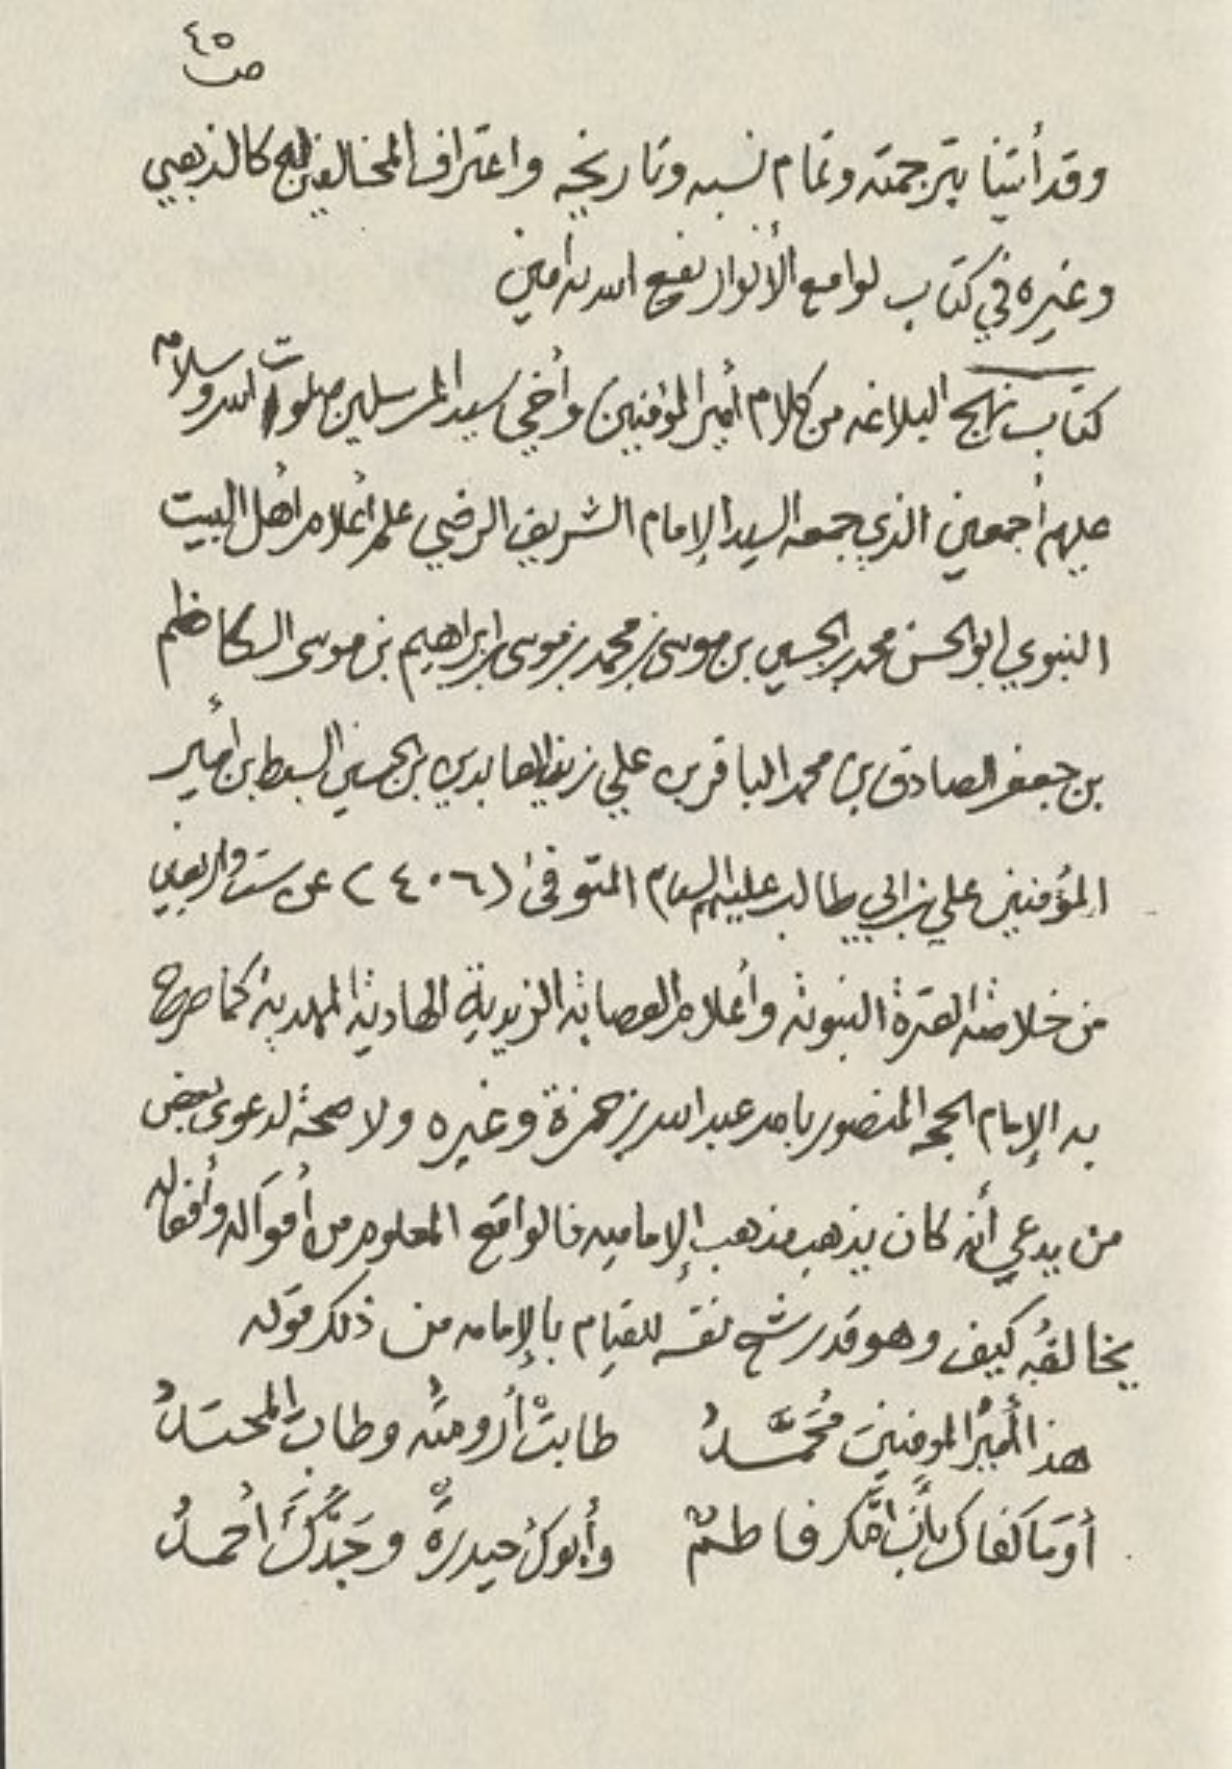 ٤٥
ص
وقد أتينا بترجمته وتمام نسبه وتاريخه واعتراف المخالفين له كالذهبي
وغيره في كتاب لوامع الأنوار نفع الله به آمين
كتاب نهج البلاغه من كلام أمير المؤمنين وأخي سيد المرسلين صلوات الله وسلامه
عليهم أجمعين الذي جمعه السيد الإمام الشريف الرضي علم أعلام أهل البيت
النبوي ابو الحسن محمد بن الحسين بن موسى بن محمد بن موسى بن ابراهيم بن موسى الكاظم
بن جعفر الصادق بن محمد الباقر بن علي زين العابدين بن الحسين السبط بن أمير
المؤمنين علي بن ابي طالب عليهم السلام المتوفى (٤٠٦) عن ست وأربعين
من خلاصة العترة النبوية وأعلام العصابة الزيدية الهادية المهدية كما صرح
به الإمام الحجه المنصور بالله عبدالله بن حمزة وغيره ولا صحة لدعوى بعض
من يدعي أنه كان يذهب مذهب الإماميه فالواقع المعلوم من أقواله وأفعاله
يخالفه كيف وهو قد رشح نفسه للقيام بالإمامه من ذلك قوله
هذا أميرُ المومنينَ مُحَمَّدُ طابتْ أرومتُه وطابَ المحتدُ
أوَمَا كفاكَ بأنَّ امَّكَ فاطمٌ وأبوكَ حيدرةٌ وجَدُّكَ احمدُ